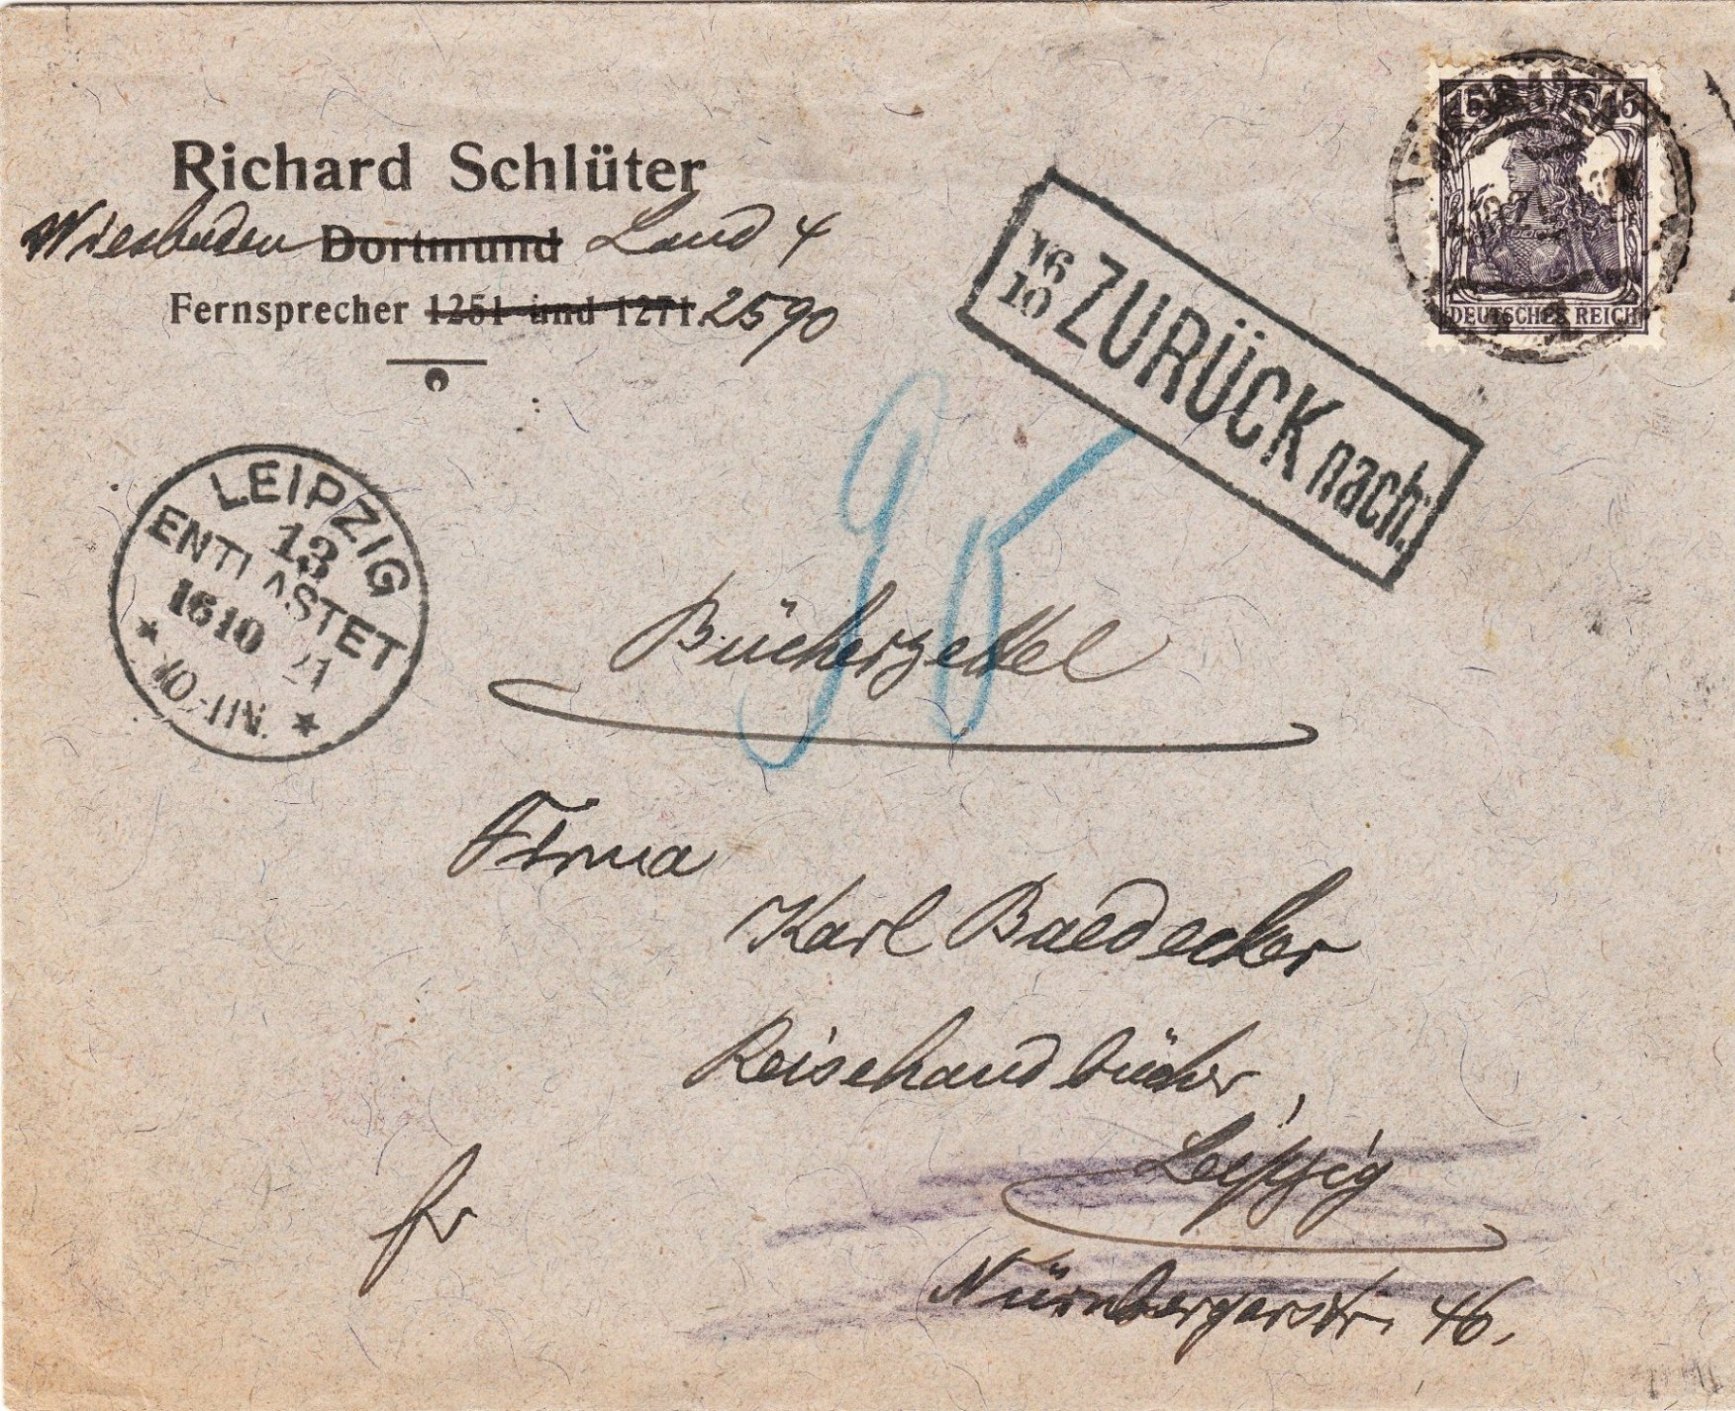 Richard Schlüter
Wiesbaden Dortmund Land 4
Fernsprecher 1251 und 1271. 2590
15 15
DEUTSCHES REICH
16
10 ZURÜCK nach:
LEIPZIG
13
ENTLASTET
16 10 21
10-11V.
95
Bücherzettel
Firma
Karl Baedecker
Reisehandbücher,
Leipzig
fr
Nürnbergerstr. 46.